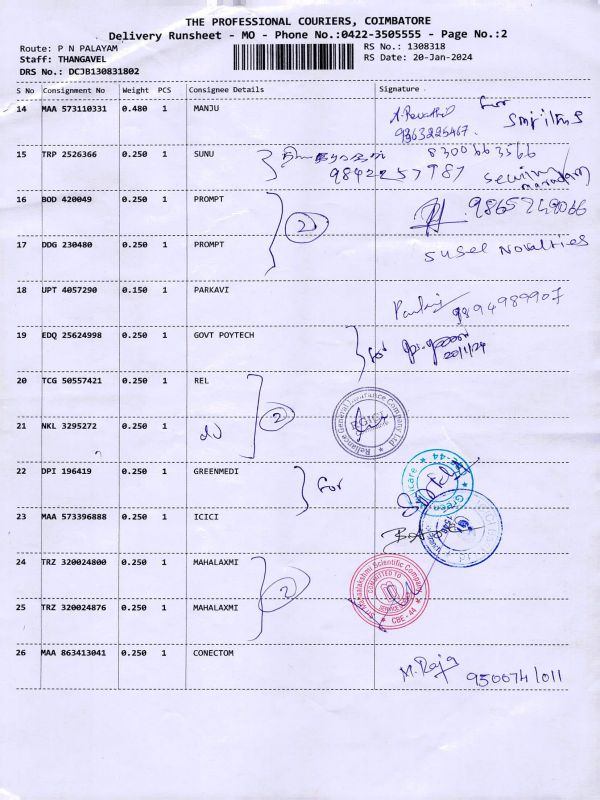 THE PROFESSIONAL COURIERS, COIMBATORE
Delivery Runsheet - MO - Phone No.:0422-3505555 - Page No.:2
Route: P N PALAYAM
RS No.: 1308318
Staff: THANGAVEL
RS Date: 20-Jan-2024
DRS No.: DCJB130831802
S No Consignment No Weight PCS Consignee Details Signature
14 MAA 573110331 0.480 1 MANJU
9363225467 for
15 TRP 2526366 0.250 1 SUNU 8300663566
9842257987
16 BOD 420049 0.250 1 PROMPT 2
17 DDG 230480 0.250 1 PROMPT
Susel Novalties
18 UPT 4057290 0.150 1 PARKAVI
9894989907
19 EDQ 25624998 0.250 1 GOVT POYTECH
for
20/1/24
20 TCG 50557421 0.250 1 REL 2
Reliance General Insurance Company Ltd. RGICL
21 NKL 3295272 0.250 1
22 DPI 196419 0.250 1 GREENMEDI for
23 MAA 573396888 0.250 1 ICICI
24 TRZ 320024800 0.250 1 MAHALAXMI 2
Sri Mahalakshmi Scientific Company
COMMITTED TO SERVICE
CBE - 44
25 TRZ 320024876 0.250 1 MAHALAXMI
26 MAA 863413041 0.250 1 CONECTOM
M. Raja 9500741011